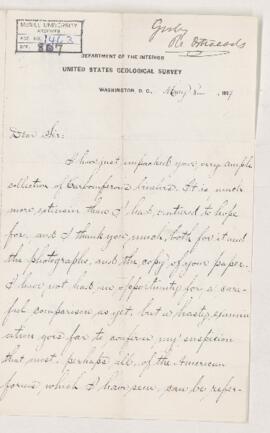 McGILL UNIVERSITY
ARCHIVES
ACC. NO. 1463
REF. 887
Girty
Re Ostracods
DEPARTMENT OF THE INTERIOR
UNITED STATES GEOLOGICAL SURVEY
WASHINGTON, D. C.,
Dear Sir:
I have just unpacked your very ample
collection of Carboniferous
It is much
more extensive than I had ventured to hope
for, and I thank you much, both for it and
the photographs, and the copy of your paper.
I have not had an opportunity for a care-
ful comparison as yet, but a hasty examin-
ation goes far to confirm my suspicion
that most, perhaps all, of the American
forms which I have seen, can be refer-